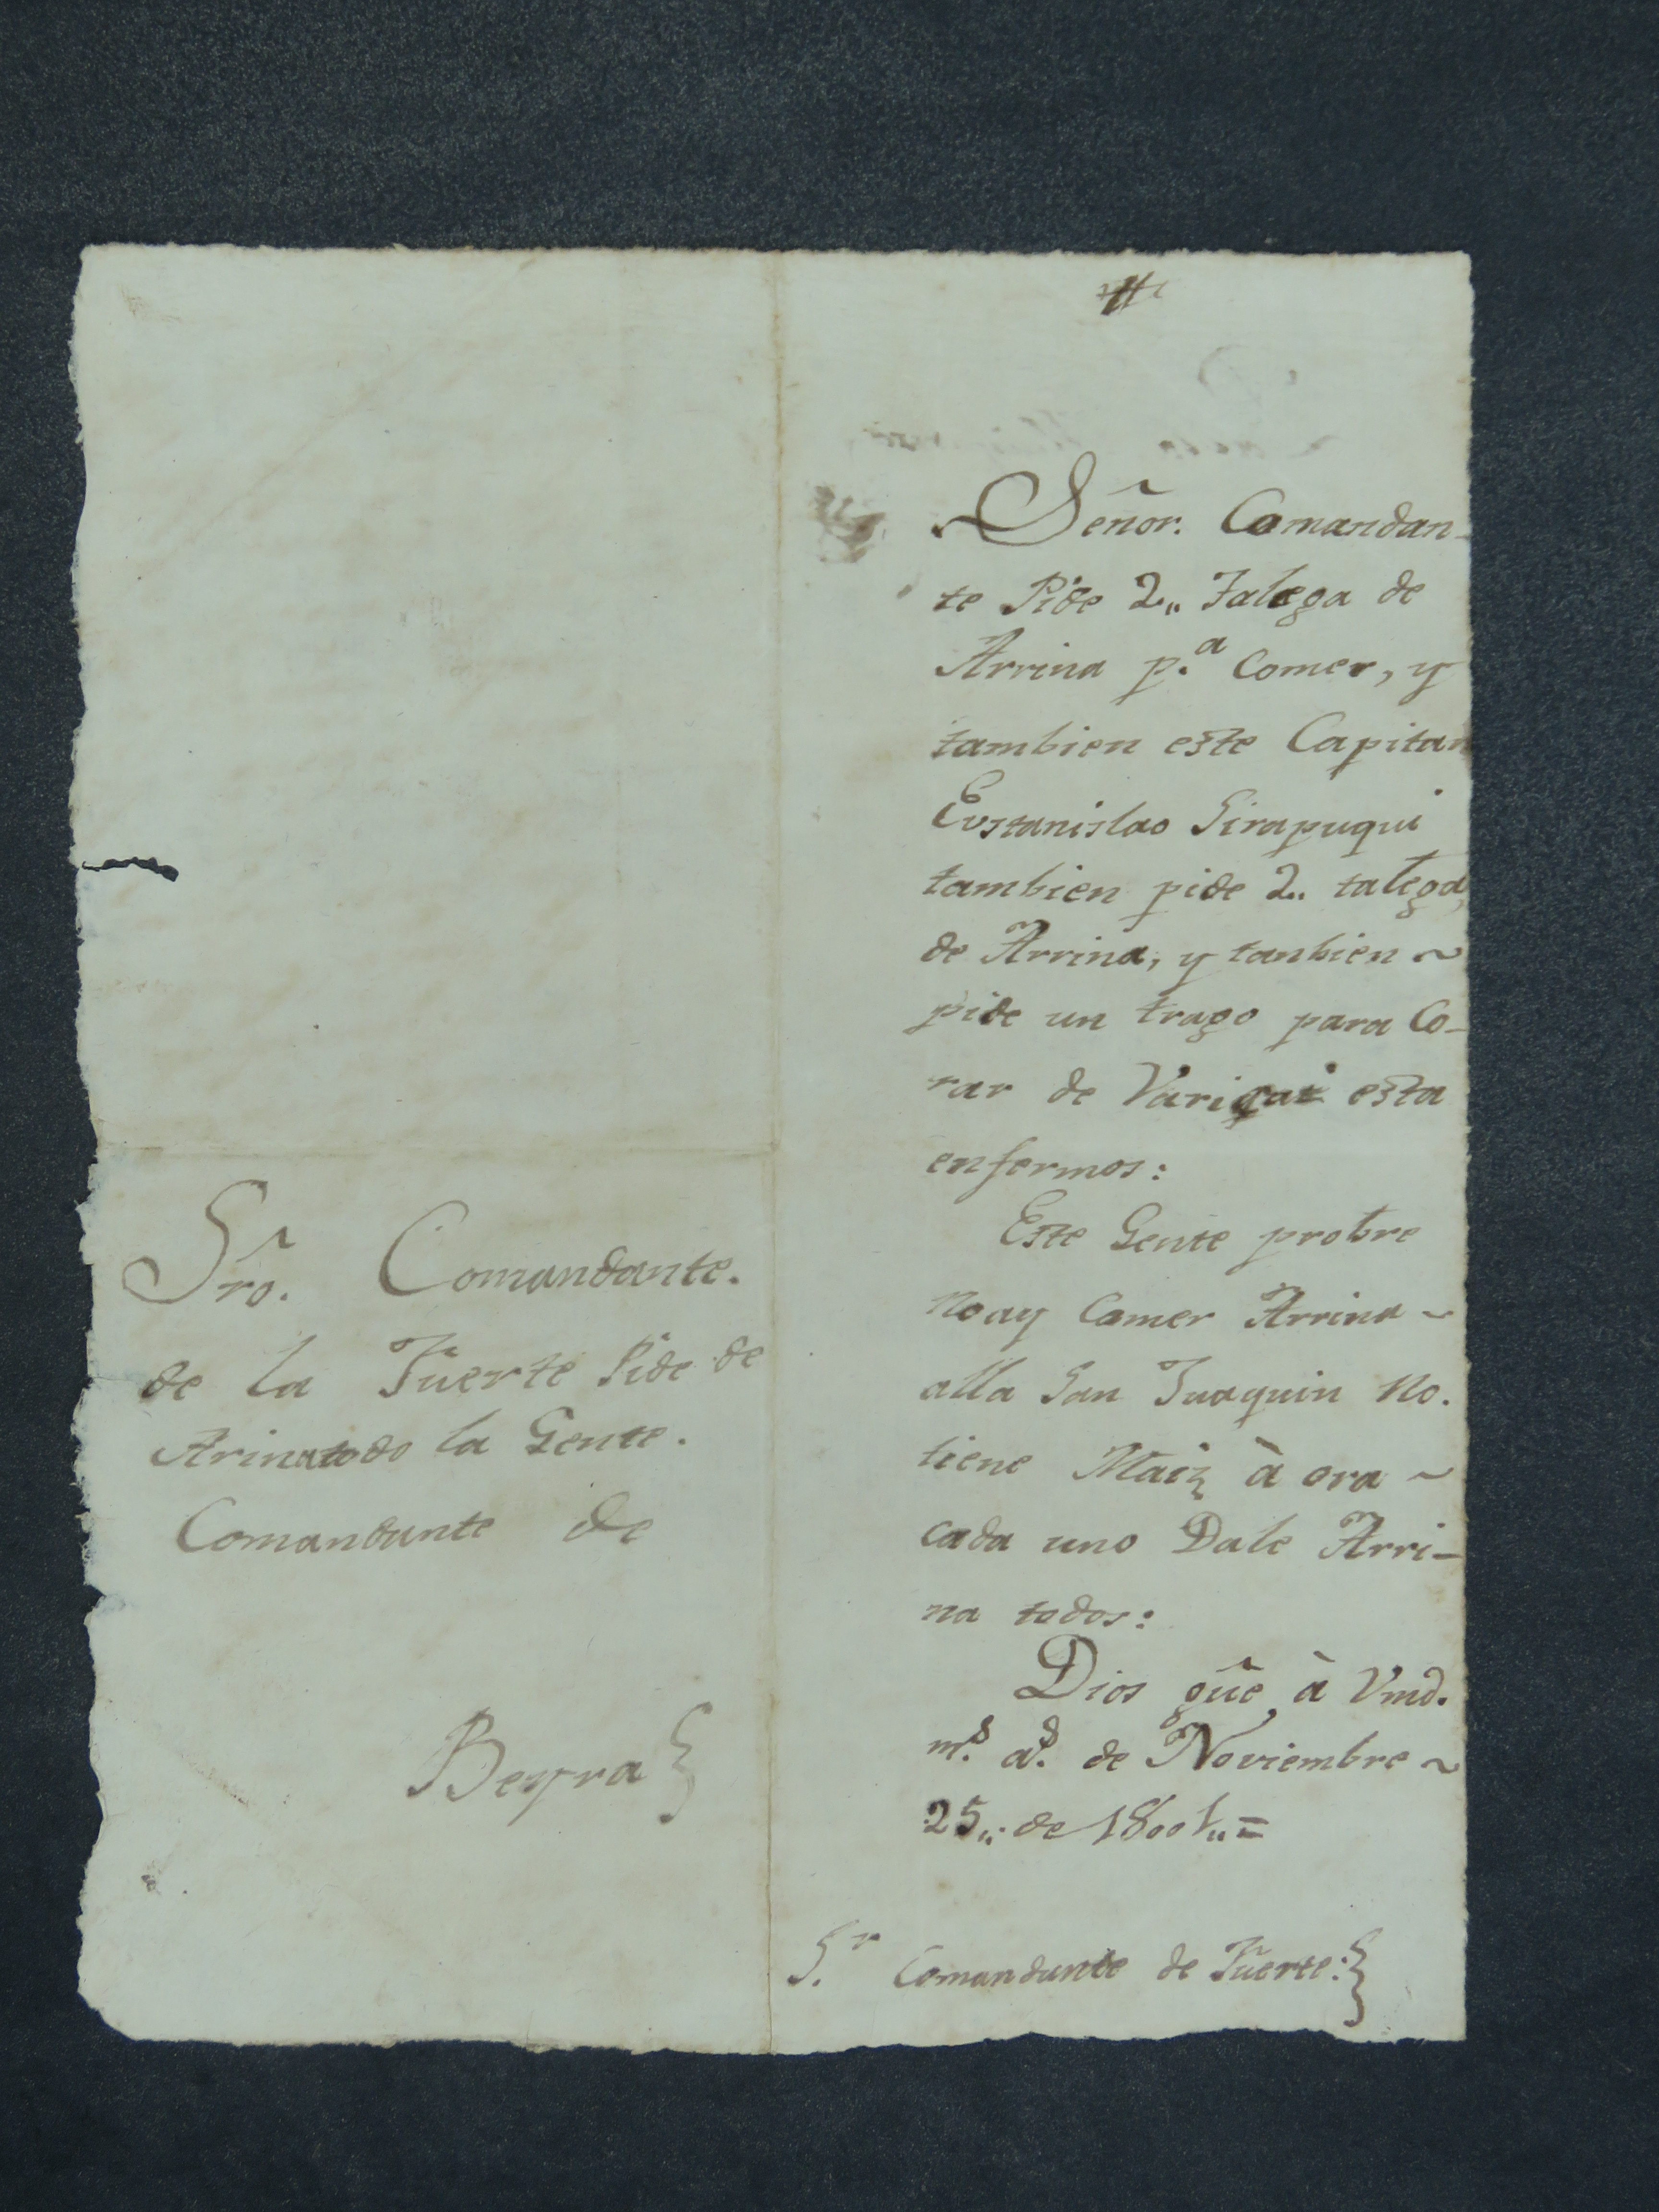 Señor. Comandan-
te Pide 2,, Talega de
Arrina p.a Comer, y
tambien este Capitan
Eustanislao Sirapuqui
tambien pide 2.. talega,
de Arrina, y tanbien ~
pide un trago para Co-
rar de esta
enfermos:
Este Gente probre
Noay Comer Arrina ~
alla San Juaquin No.
tiene Maiz à ora ~
cada uno Dale Arri-
na todos:
Dios gûe à Vmd.
m.s a.s de Noviembre ~
25,, de 1801,, =
S.r Comandante de Fuerte:
Sro. Comandante.
de la Fuerte Pide de
Arinatodo la Gente.
Comandante de
Beyra